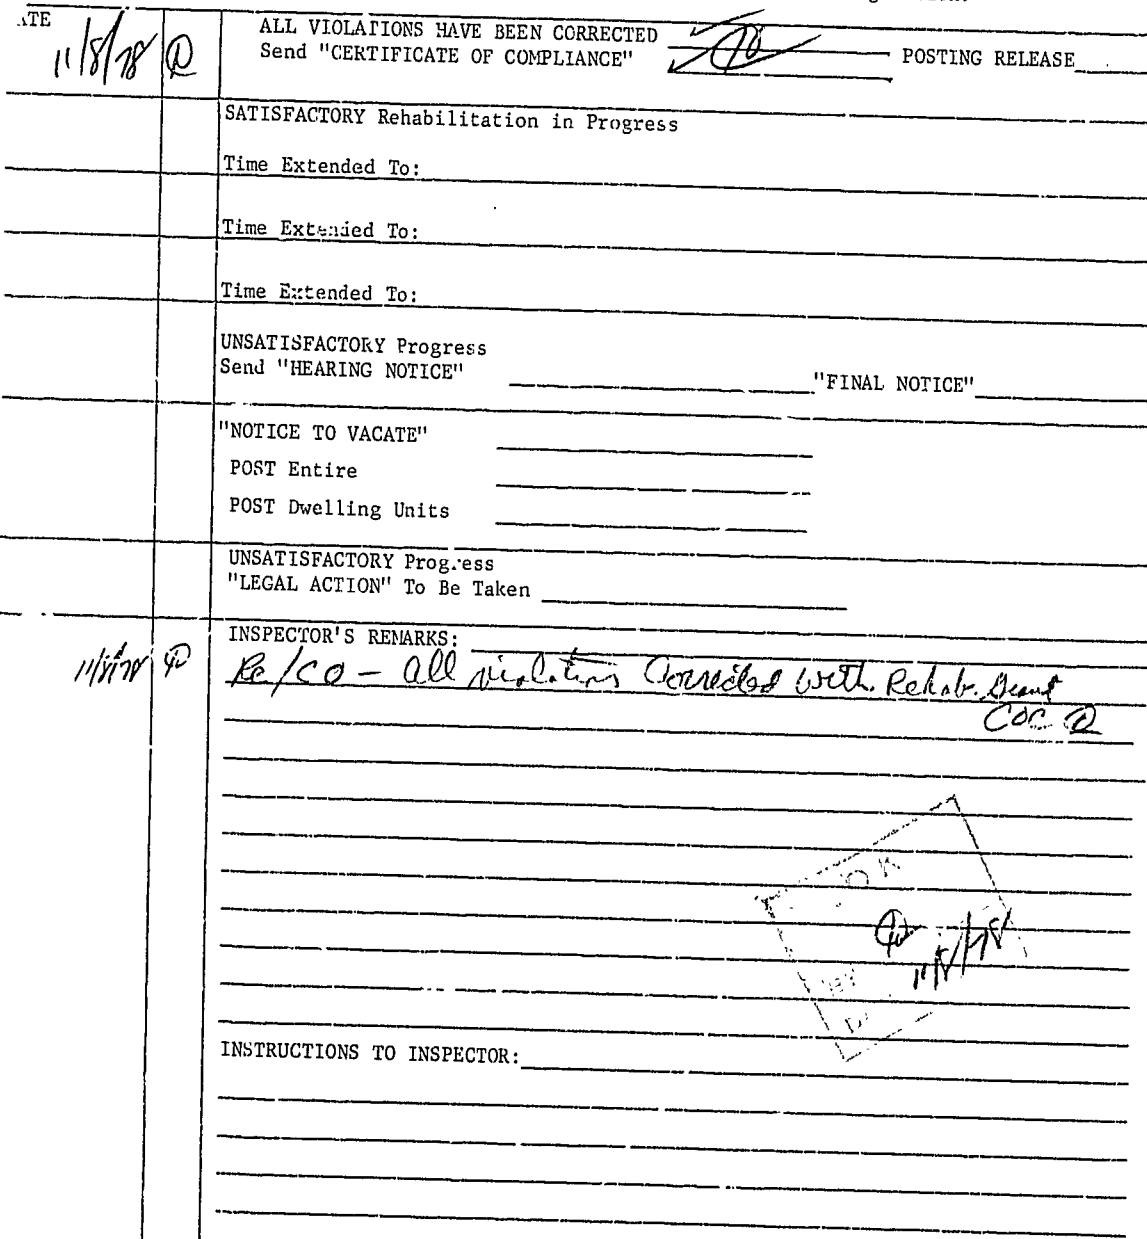 ATE
11/8/78 ALL VIOLATIONS HAVE BEEN CORRECTED
Send "CERTIFICATE OF COMPLIANCE" POSTING RELEASE
SATISFACTORY Rehabilitation in Progress
Time Extended To:
Time Extended To:
Time Extended To:
UNSATISFACTORY Progress
Send "HEARING NOTICE" "FINAL NOTICE"
"NOTICE TO VACATE"
POST Entire
POST Dwelling Units
UNSATISFACTORY Progress
"LEGAL ACTION" To Be Taken
INSPECTOR'S REMARKS:
11/8/78 Re/CO - all violations Corrected with Rehab. Grant
COC
OK
BY
11/8/78
INSTRUCTIONS TO INSPECTOR: